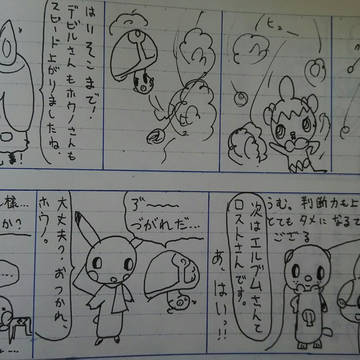 ヒュー
はいそこまで!
デビルさんもホウノさんも
スピード上がりましたね。
うむ。判断力も上
とてもタメになるて
ござる
次はエルブムさんと
ロストさんです。
あ、はいっ!!
づがれだ…
大丈夫?おつかれ、
ホウノ。
様…
か?